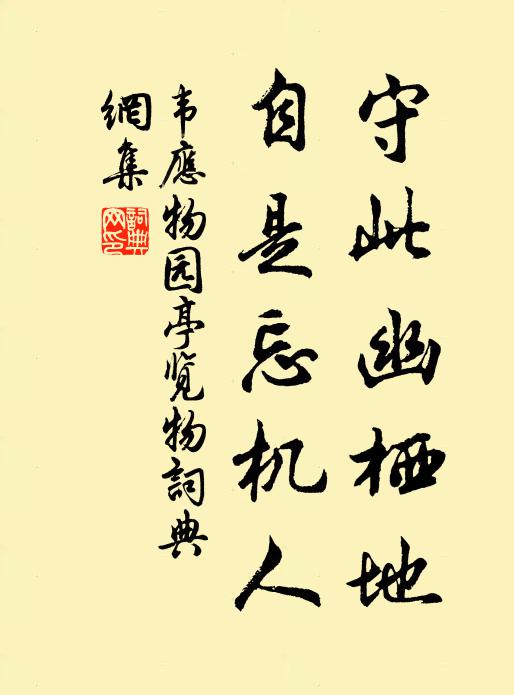 守此幽栖地
自是忘机人
韦應物园亭览物詞典
網集
詞典
网印